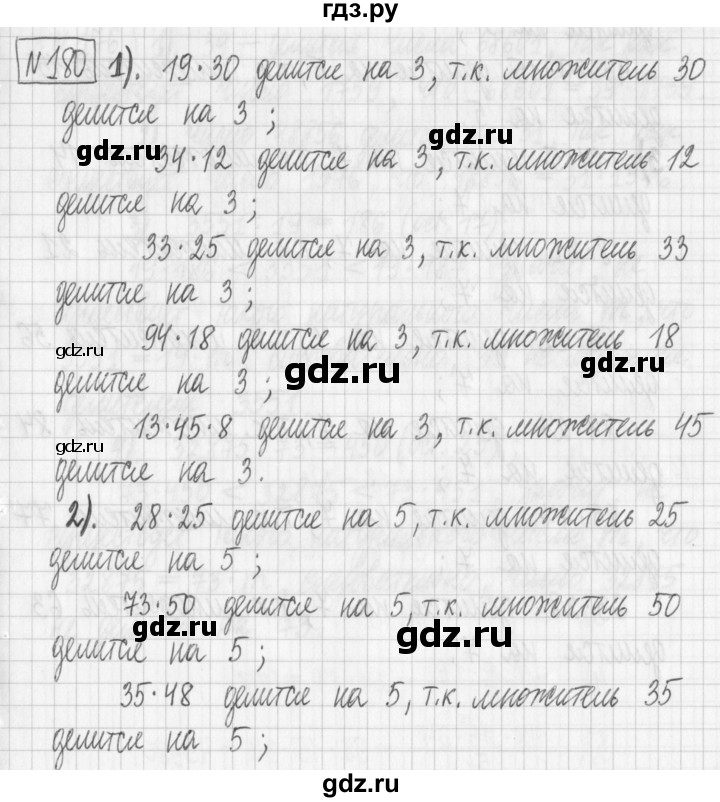 гдз.ру
№180 1). 19·30 делится на 3, т.к. множитель 30
делится на 3 ;
gdz.ru gdz.ru
34·12 делится на 3, т.к. множитель 12
делится на 3 ;
33·25 делится на 3, т.к. множитель 33
делится на 3 ;
94·18 делится на 3, т.к. множитель 18
gdz.ru gdz.ru gdz.ru
делится на 3 ;
13·45·8 делится на 3, т.к. множитель 45
gdz.ru
делится на 3.
2). 28·25 делится на 5, т.к. множитель 25
делится на 5 ;
73·50 делится на 5, т.к. множитель 50
gdz.ru gdz.ru
делится на 5 ;
35·48 делится на 5, т.к. множитель 35
делится на 5 ;
gdz.ru